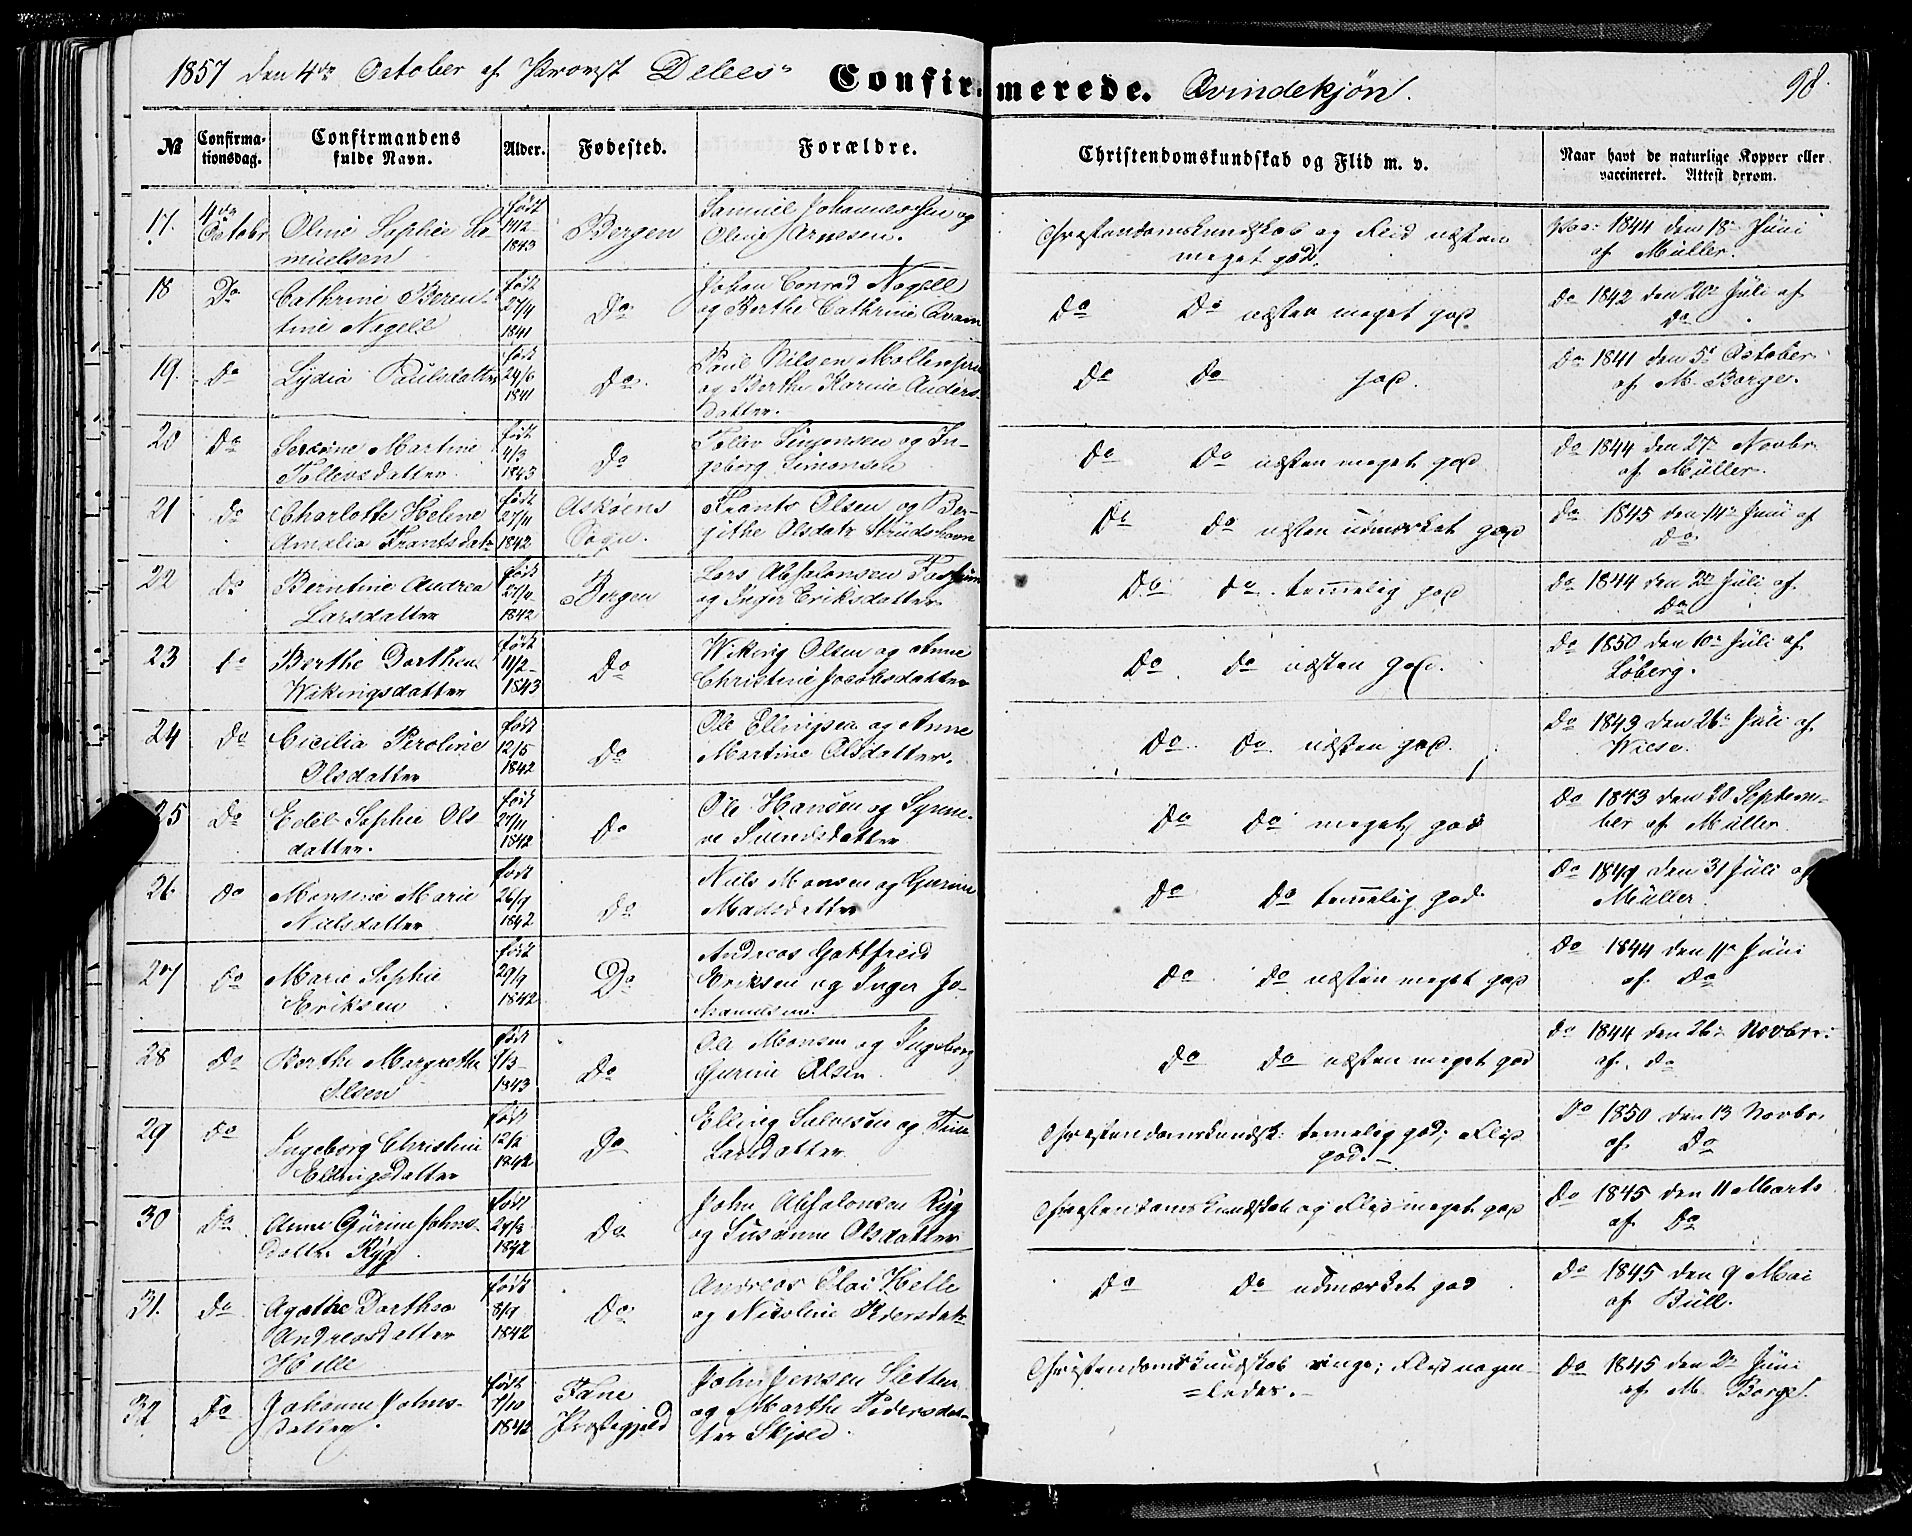 1857 den 4de October af Provst
Confirmerede. Qvindekjøn.
98.
№
Confirmationsdag.
Confirmandens fulde Navn.
Alder.
Fødested.
Forældre.
Christendomskundskab og Flid m. v.
Naar havt de naturlige Kopper eller vaccineret. Attest derom.
17. 4de Octobr Oline Sophie Samuelsen født 19/12 1843 Bergen Samuel Johannessen og Oline Arnesen. Christendomskundskab og Flid næsten meget god. Vac: 1844 den 18de Juni af Müller.
18 Do Cathrine Berentine Nagell født 27/4 1841 Do Johan Conrad Nagell og Berthe Cathrine Do Do næsten meget god. do 1842 den 20de Juli af Do
19. do Lydia Paulsdatter født 24/6 1841 Do. Paul Nilsen og Berthe Karine Andersdatter. Do Do god. Do 1841 den 5te October af M. Borge.
20 Do Martine Tollevsdatter født 4/3 1843 Do og Ingeborg Simonsen Do Do næsten meget god do 1844 den 27de Novbr. af Müller.
21 do Charlotte Helene Amalia Frantsdatr født 27/11 1842 Askøens Sogn. Frants Olsen og Bergithe Olsdatr Strudshavn Do Do næsten udmærket god do 1845 den 14de Juni af Do
22 do Berntine Andrea Larsdatter født 1842 Bergen Lars Absalonsen og Inger Eriksdatter Do do temmelig god do 1844 den 2den Juli af Do
23 do Berthe Dorthea Wikingsdatter født 11/2 1843 Do Wiking Olsen og Anne Christine Jacobsdatter Do do næsten god. do 1850 den 10de Juli af Løberg.
24 do Cicilia Peroline Olsdatter født 12/5 1842 Do Ole Ellingsen og Anne Martine Olsdatter. Do do næsten god. Do 1843 den 26de Juli af Wiese.
25 Do Edel Sophie Olsdatter. født 27/11 1842 do Ole Hansen og Synneve Svendsdatter Do Do meget god Do 1843 den 20 September af Müller
26 do Monsine Marie Nielsdatter født 26/9 1842 do Niels Monsen og Gurine Madsdatter Do Do temmelig god. Do 1849 den 31 Juli af Müller.
27 do Marie Sophie Eriksen født 29/9 1842 Do Andreas Gottfried Eriksen og Inger Do Do næsten meget god Do 1844 den 11te Juni af Do
28 do Berthe Margrethe Olsen født 1/3 1843 do Ole Monsen og Ingeborg Gurine Olsen. do do næsten meget god do 1844 den 26de Novbr: af. do
29 do Ingeborg Christine Ellingsdatter født 1842 Do Elling og Larsdatter. Christendomskundsk: temelig god; Flid god.- Do 1850 den 13 Novbr. af Do
30 do. Anne Gurine Johnsdatter Ryg født 1842 do John Absalonsen Ryg og Susanne Olsdatter Christendomskundskab og Flid meget god Do 1845 den 11 Marts af Do
31. do Agathe Dorthea Andreasdatter Helle født 8/9 1842 Do Andreas Olai Helle og Nicoline Pedersdatr Do Do udmærket god do 1845 den 9 Mai af Büll.
32 Do Johanne Johnsdatter. født 7/10 1842 Fane Præstegjeld John Jensen Sletten og Marthe Pedersdatter Skjold. Christendomskundskab ringe; Flid nogenledes. Do 1845 den 2den Juni af M. Borge.